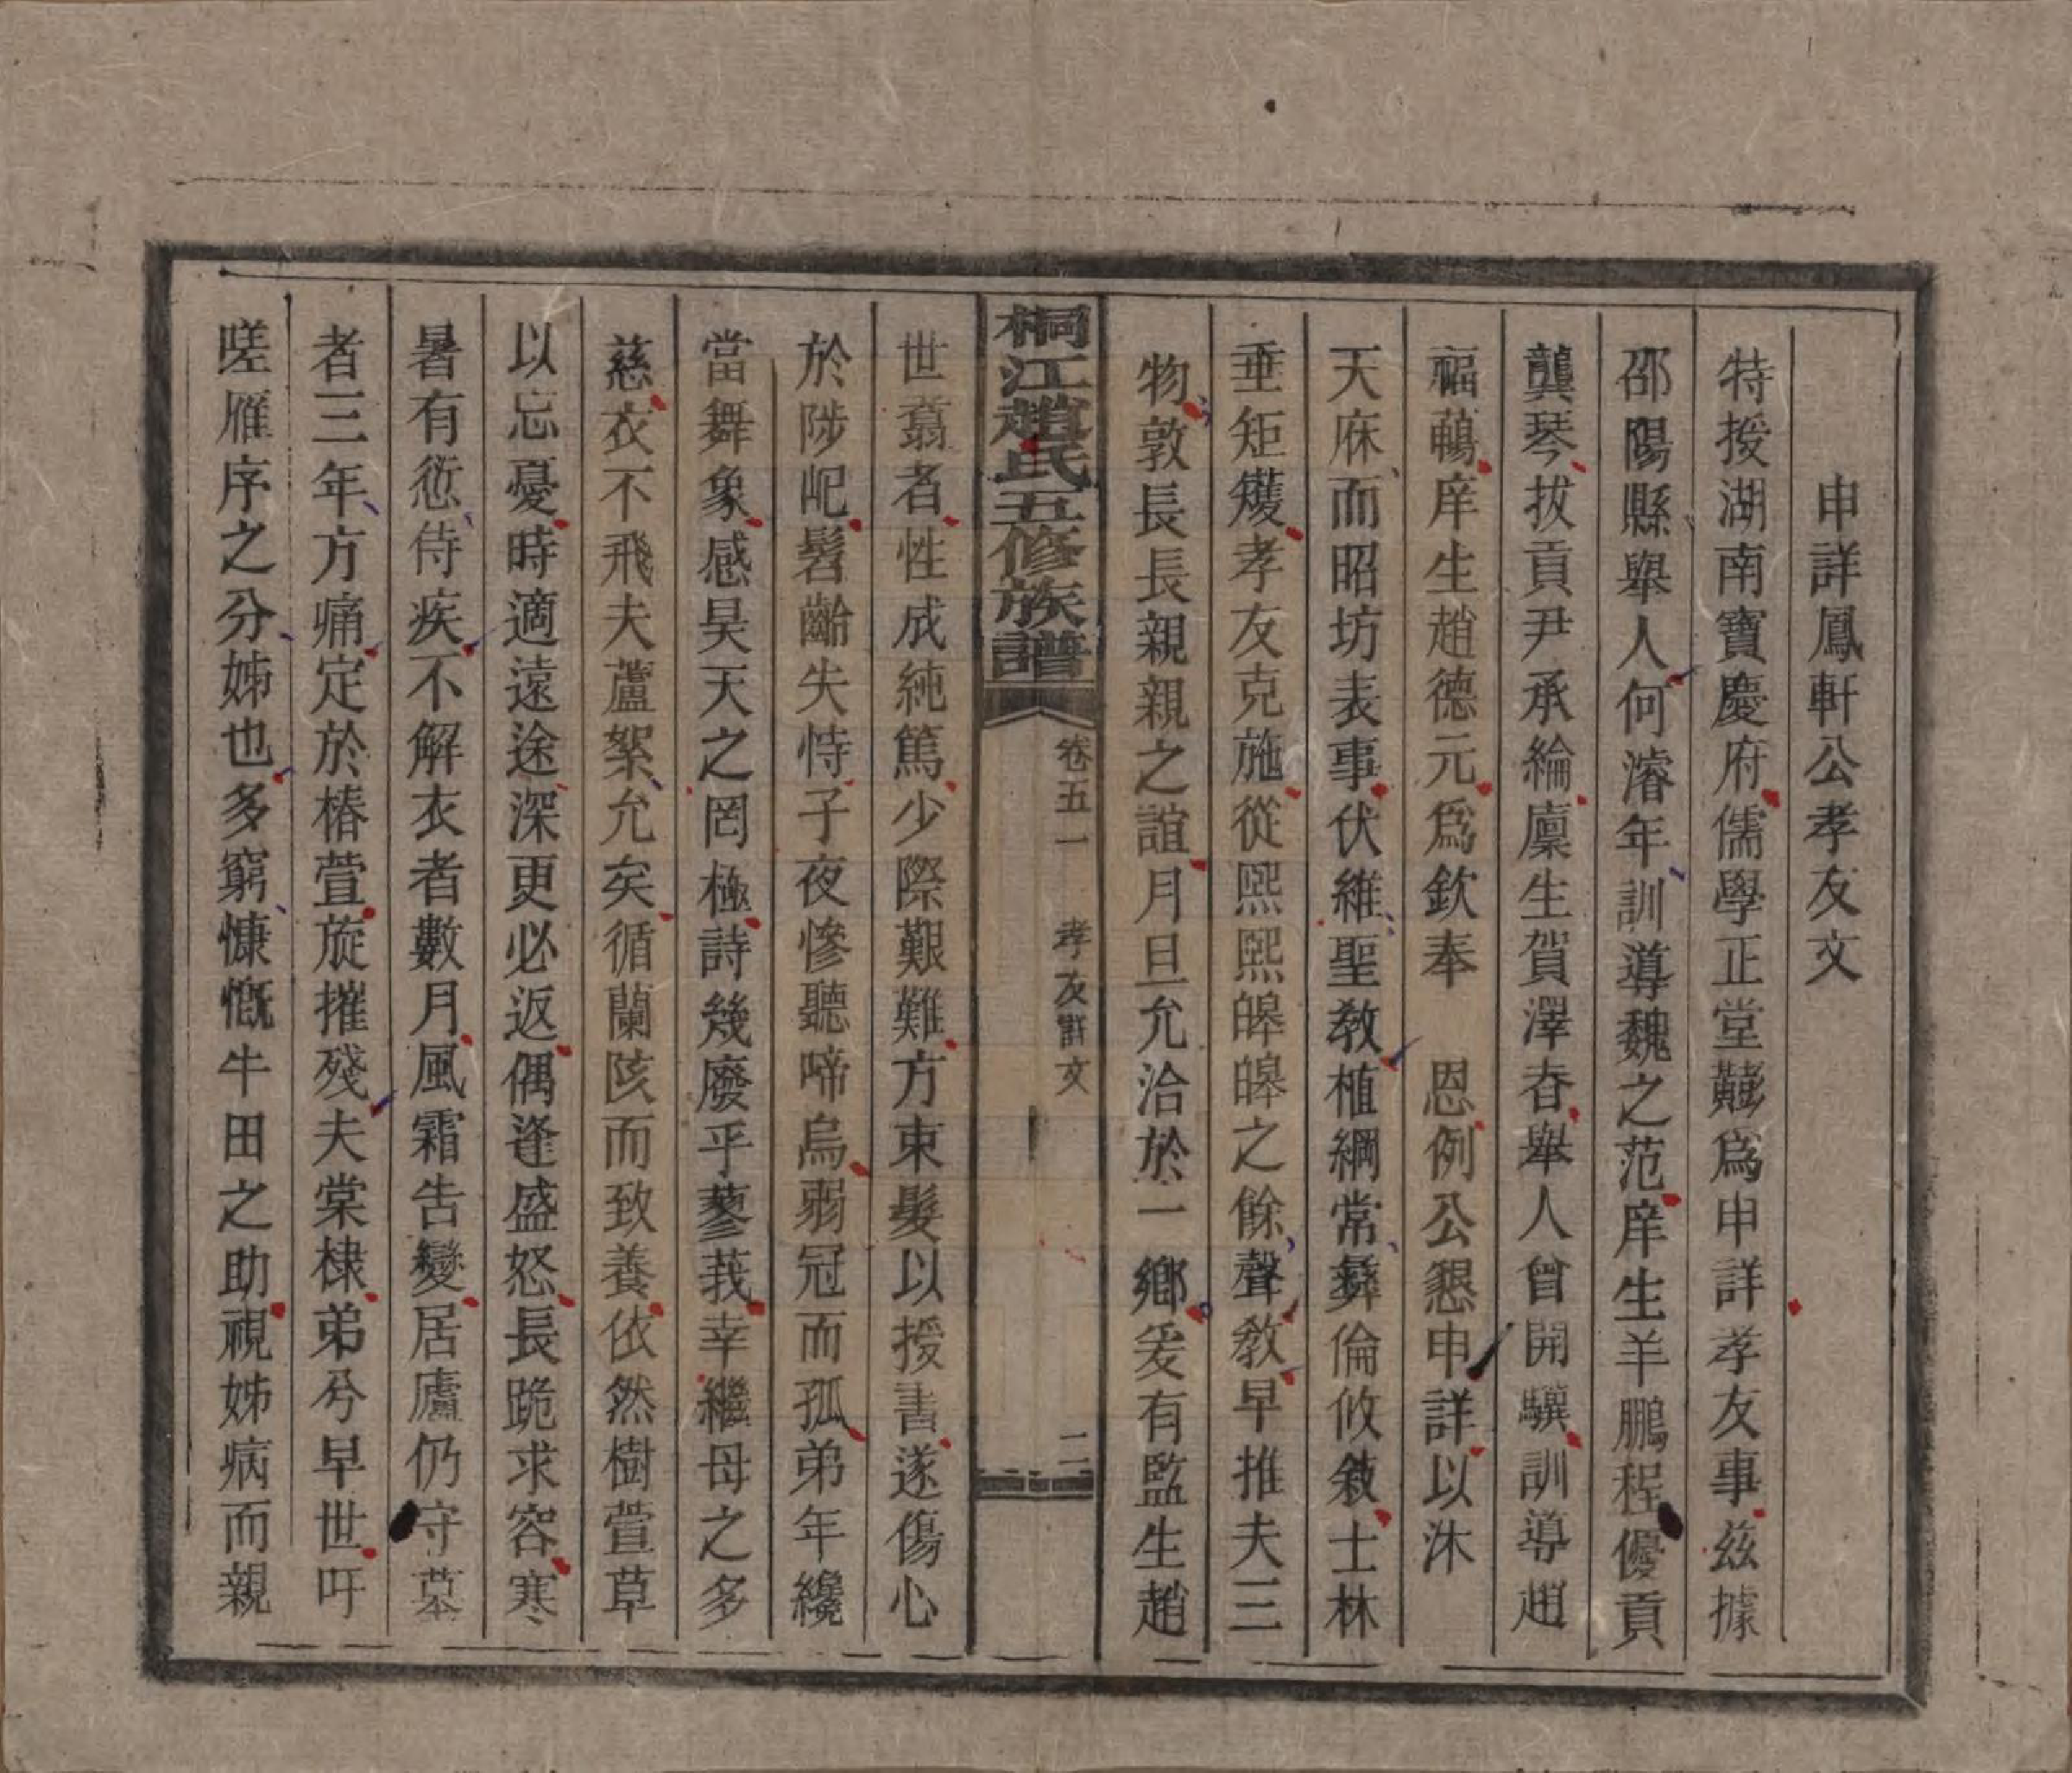 申詳鳳軒公孝友文
特授湖南寶慶府儒學正堂為申詳孝友事茲據
邵陽縣舉人何濬年訓導魏之范庠生羊鵬程優貢
龔琴拔貢尹承綸廩生賀澤春舉人曾開驥訓導趙
福鶴庠生趙德元為欽奉　恩例公懇申詳以沐
天庥而昭坊表事伏維聖教植綱常彝倫攸敘士林
垂矩矱孝友克施從熙熙皞皞之餘聲教早推夫三
物敦長長親親之誼月旦允洽於一鄉爰有監生趙
桐江趙氏五修族譜　卷五一　孝友詳文　二
世翥者性成純篤少際艱難方束髮以授書遂傷心
於陟屺髫齡失恃子夜慘聽啼烏弱冠而孤弟年纔
當舞象感昊天之罔極詩幾廢乎蓼莪幸繼母之多
慈衣不飛夫蘆絮允矣循蘭陔而致養依然樹萱草
以忘憂時適遠途深更必返偶逢盛怒長跪求容寒
暑有愆侍疾不解衣者數月風霜告變居廬仍守墓
者三年方痛定於椿萱旋摧殘夫棠棣弟兮早世吁
嗟雁序之分姊也多窮慷慨牛田之助視姊病而親